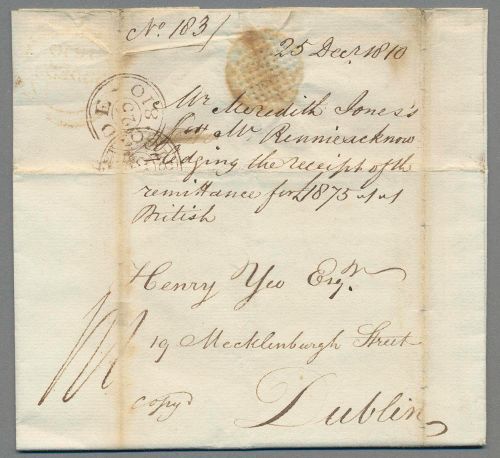 No. 183
25 Decr. 1810
Mr. Meredith Jones's
for Mr. Rennie acknow
ledging the receipt of the
remittance for £1875
British
Henry Yeo Esqr.
19 Mecklenburgh Street
copyd
Dublin